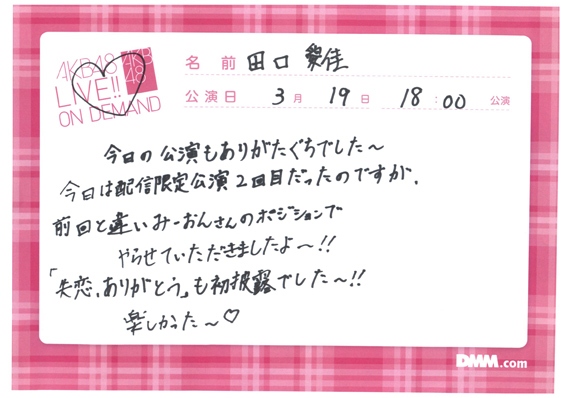 AKB48
LIVE!!
ON DEMAND
AKB
48
名前 田口 愛佳
公演日 3月 19日 18:00 公演
今日の公演もありがたぐちでした〜
今日は配信限定公演2回目だったのですが、
前回と違いみーおんさんのポジションで
やらせていただきましたよ〜!!
「失恋、ありがとう」も初披露でした〜!!
楽しかった〜♡
DMM.com